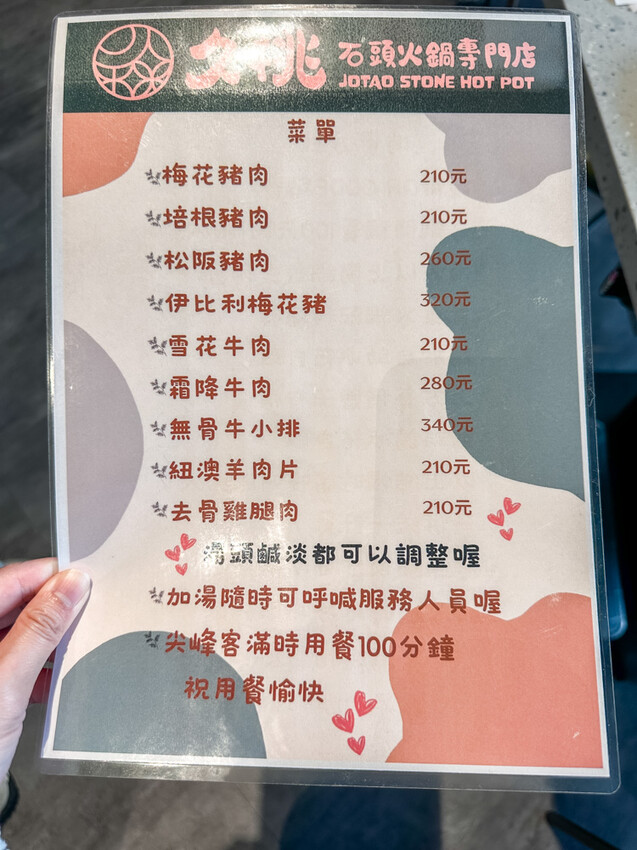 久桃 石頭火鍋專門店
JOTAO STONE HOT POT
菜單
梅花豬肉 210元
培根豬肉 210元
松阪豬肉 260元
伊比利梅花豬 320元
雪花牛肉 210元
霜降牛肉 280元
無骨牛小排 340元
紐澳羊肉片 210元
去骨雞腿肉 210元
湯頭鹹淡都可以調整喔
加湯隨時可呼喊服務人員喔
尖峰客滿時用餐100分鐘
祝用餐愉快